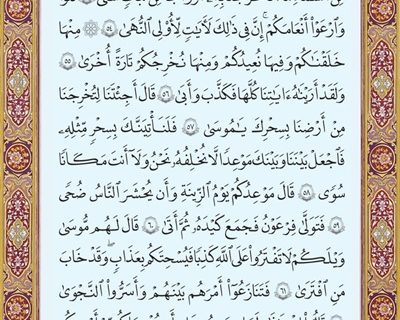 وَٱرْعَوْا۟ أَنْعَٰمَكُمْ ۗ إِنَّ فِى ذَٰلِكَ لَـَٔايَٰتٍ لِّأُو۟لِى ٱلنُّهَىٰ ۝٥٤ ۞ مِنْهَا
خَلَقْنَٰكُمْ وَفِيهَا نُعِيدُكُمْ وَمِنْهَا نُخْرِجُكُمْ تَارَةً أُخْرَىٰ ۝٥٥
وَلَقَدْ أَرَيْنَٰهُ ءَايَٰتِنَا كُلَّهَا فَكَذَّبَ وَأَبَىٰ ۝٥٦ قَالَ أَجِئْتَنَا لِتُخْرِجَنَا
مِنْ أَرْضِنَا بِسِحْرِكَ يَٰمُوسَىٰ ۝٥٧ فَلَنَأْتِيَنَّكَ بِسِحْرٍ مِّثْلِهِۦ
فَٱجْعَلْ بَيْنَنَا وَبَيْنَكَ مَوْعِدًا لَّا نُخْلِفُهُۥ نَحْنُ وَلَآ أَنتَ مَكَانًا
سُوًى ۝٥٨ قَالَ مَوْعِدُكُمْ يَوْمُ ٱلزِّينَةِ وَأَن يُحْشَرَ ٱلنَّاسُ ضُحًى
۝٥٩ فَتَوَلَّىٰ فِرْعَوْنُ فَجَمَعَ كَيْدَهُۥ ثُمَّ أَتَىٰ ۝٦٠ قَالَ لَهُم مُّوسَىٰ
وَيْلَكُمْ لَا تَفْتَرُوا۟ عَلَى ٱللَّهِ كَذِبًا فَيُسْحِتَكُم بِعَذَابٍ ۖ وَقَدْ خَابَ
مَنِ ٱفْتَرَىٰ ۝٦١ فَتَنَٰزَعُوٓا۟ أَمْرَهُم بَيْنَهُمْ وَأَسَرُّوا۟ ٱلنَّجْوَىٰ